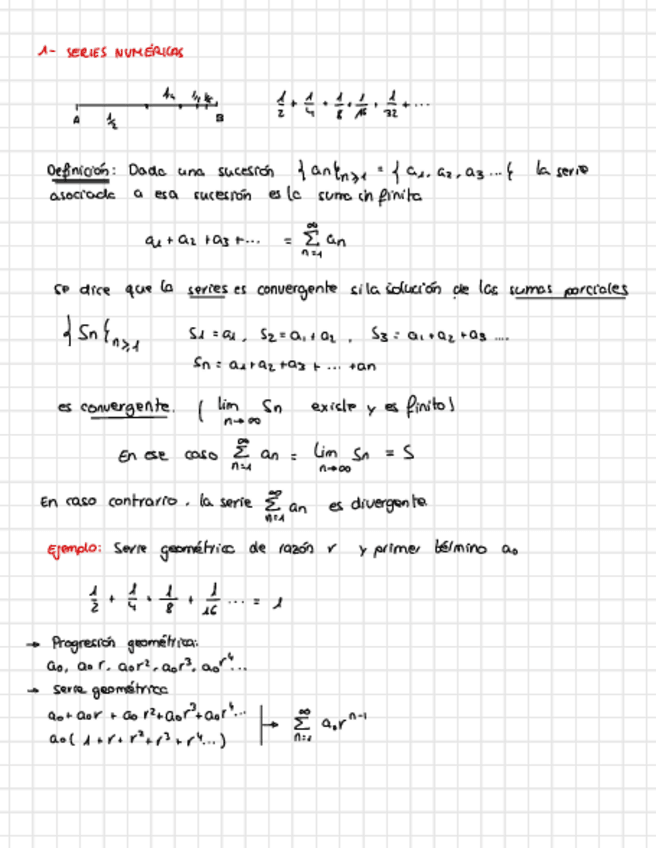 1- SERIES NUMÉRICAS
1/4 1/8
A 1/2 B
1/2 + 1/4 + 1/8 + 1/16 + 1/32 + ...
Definición: Dada una sucesión {an}n≥1 = {a1, a2, a3 ...} la serie
asociada a esa sucesión es la suma infinita
a1 + a2 + a3 + ... = ∑_{n=1}^{∞} an
se dice que la series es convergente si la solución de las sumas parciales
{Sn}n≥1 S1 = a1, S2 = a1 + a2, S3 = a1 + a2 + a3 ....
Sn = a1 + a2 + a3 + ... + an
es convergente. ( lim_{n→∞} Sn existe y es finito)
En ese caso ∑_{n=1}^{∞} an = lim_{n→∞} Sn = S
En caso contrario, la serie ∑_{n=1}^{∞} an es divergente.
Ejemplo: Serie geométrica de razón r y primer término a0
1/2 + 1/4 + 1/8 + 1/16 ... = 1
→ Progresión geométrica:
a0, a0 r, a0r², a0r³, a0r⁴...
→ serie geométrica
a0 + a0r + a0 r² + a0r³ + a0r⁴... → ∑_{n=1}^{∞} a0r^{n-1}
a0( 1 + r + r² + r³ + r⁴...)